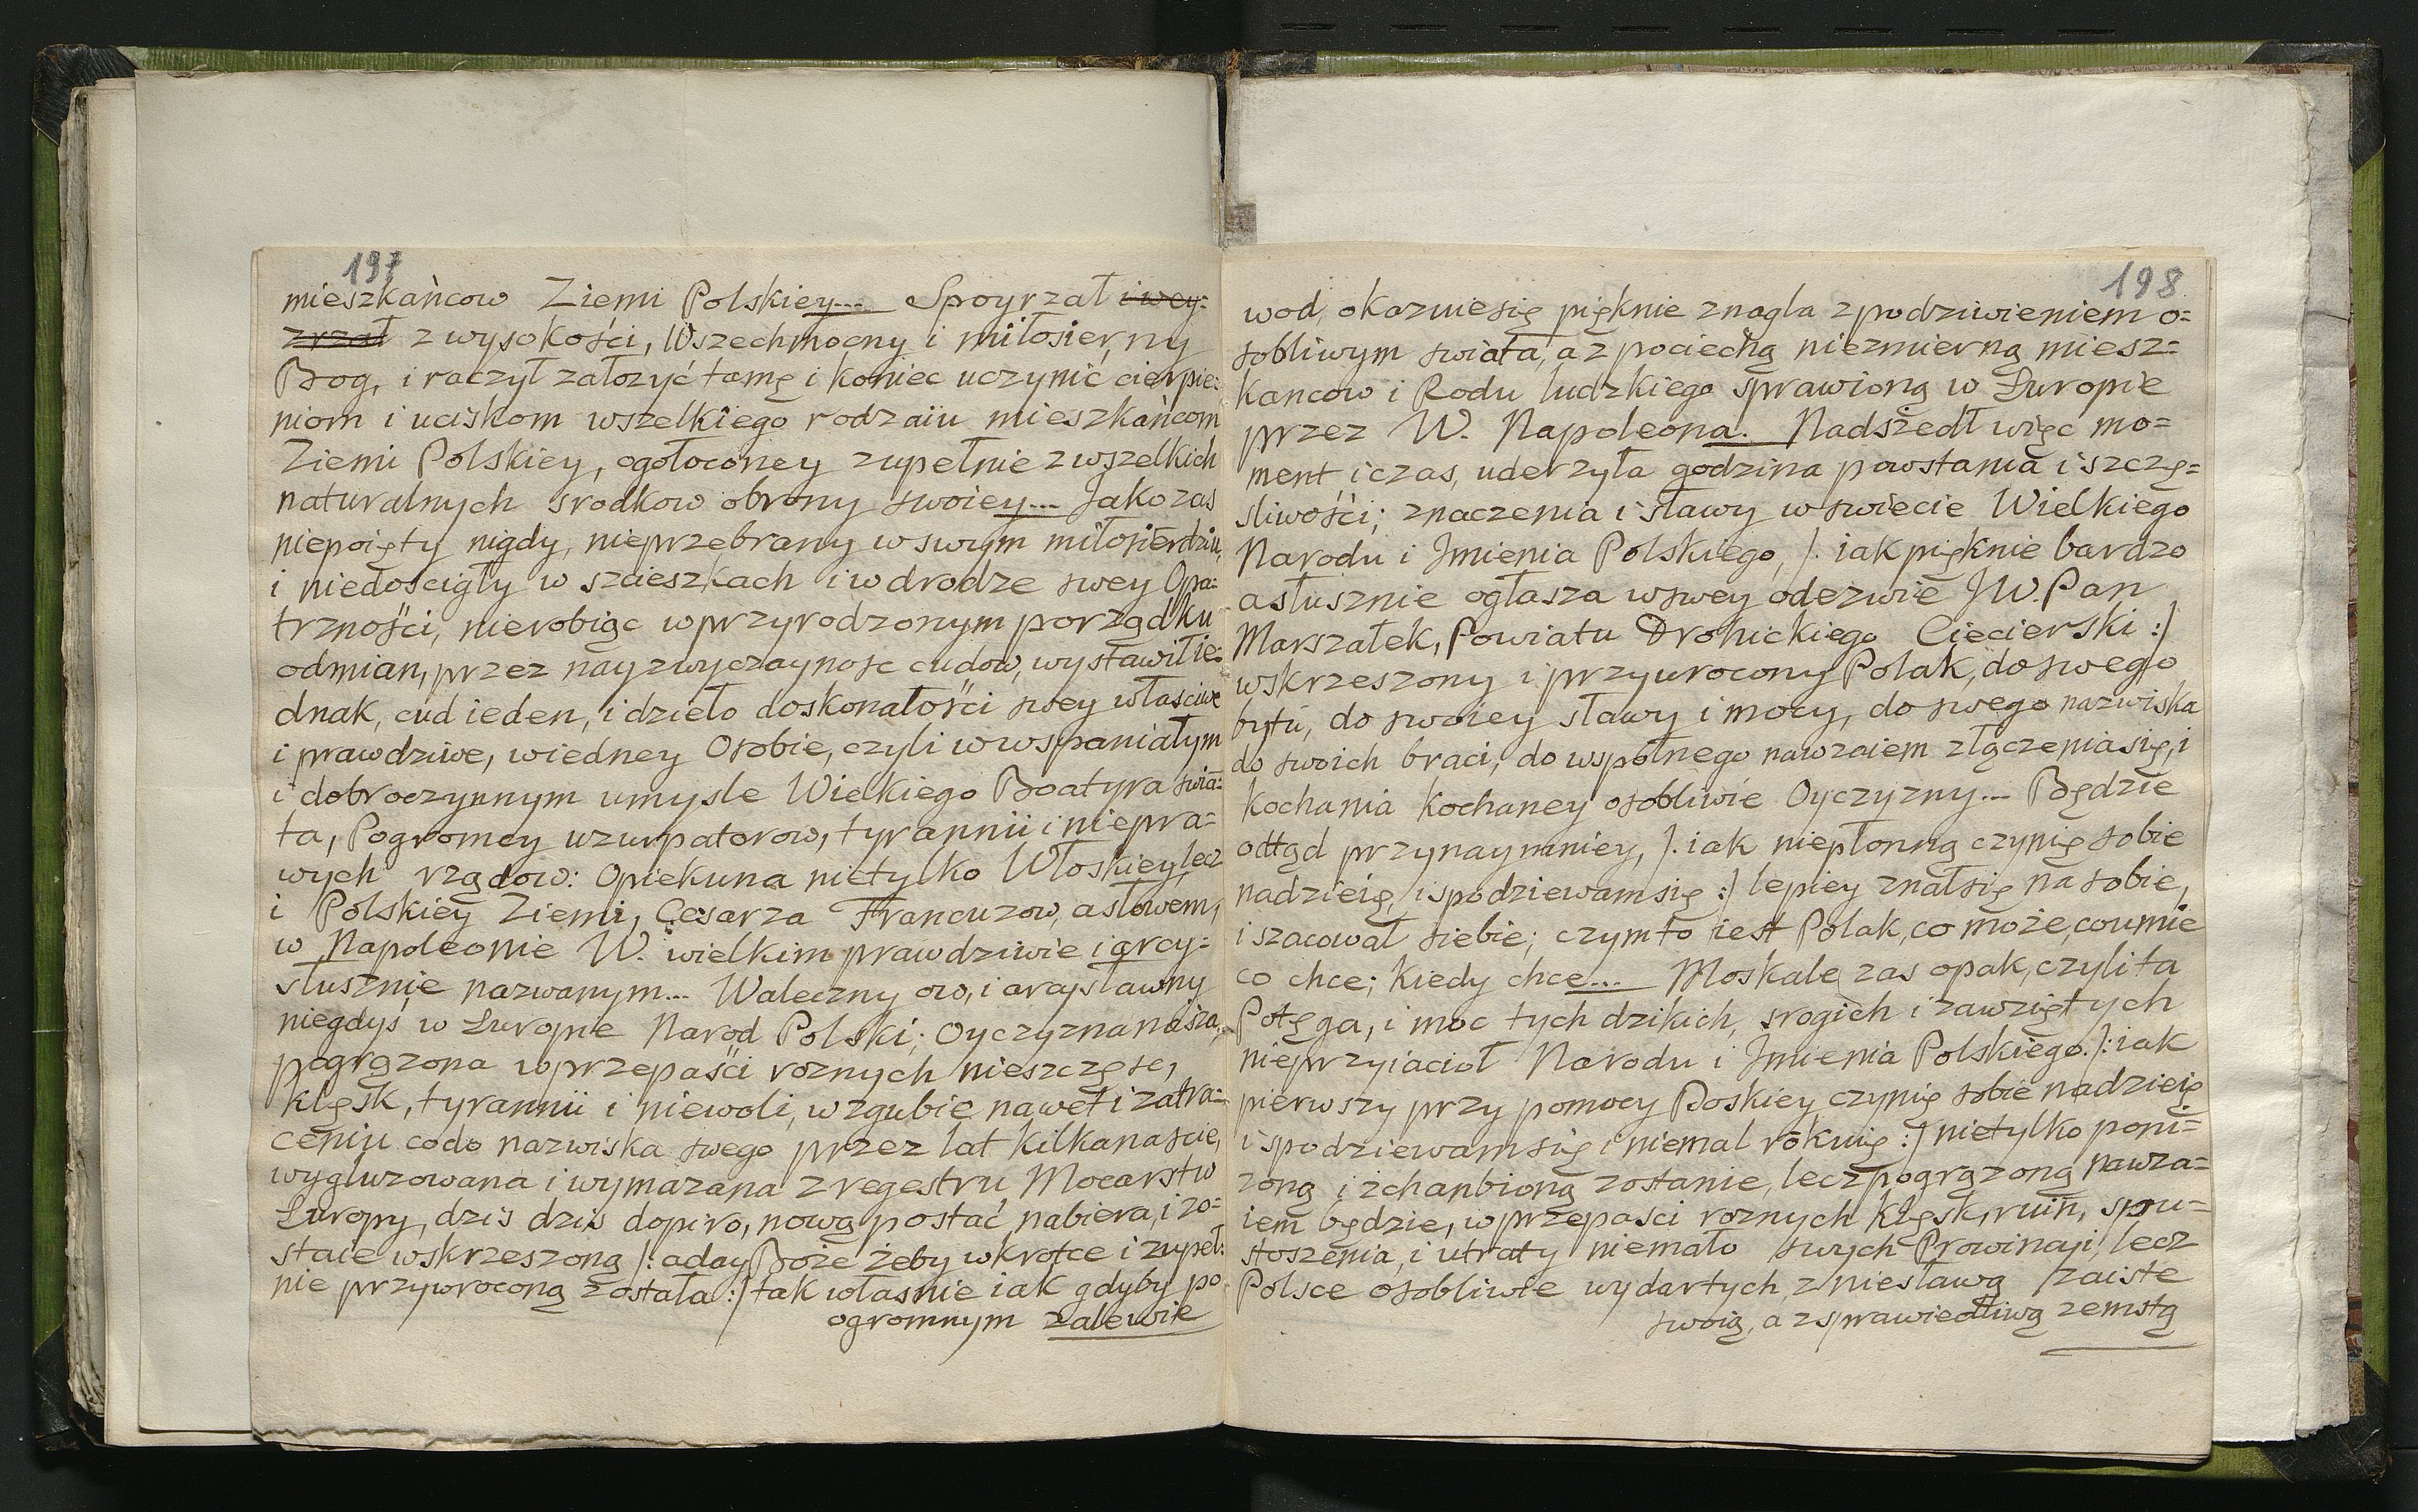 197
mieszkańcow Ziemi Polskiey... Spoyrzał i wey:
zrzał z wysokości, Wszechmocny i miłosierny
Bog, i raczył załozyć tamę i koniec uczynić cierpie:
niom i uciskom wszelkiego rodzaiu mieszkańcom
Ziemi Polskiey, ogołoconey zupełnie z wszelkich
naturalnych srodkow obrony swoiey... Jako zas
niepoięty nigdy, nieprzebrany w swym miłosierdziu,
i niedościgły w szcieszkach i w drodze swey Opa:
trzności, nierobiąc w przyrodzonym porządku
odmian, przez nayzwyczaynosc cudow, wystawił ie:
dnak, cud ieden, i dzieło doskonałości swey własciwe
i prawdziwe, wiedney Osobie, czyli w wspaniałym
i dobroczynnym umysle Wielkiego Boatyra swia:
ta, Pogromcy uzurpatorow, tyrannii i niepra=
wych rządow: Opiekuna nietylko Włoskiey, lecz
i Polskiey Ziemi, Cesarza Francuzow, a słowem,
w Napoleonie W. wielkim prawdziwie i arcy:
słusznie nazwanym... Waleczny ow, i arcysławny
niegdyś w Europie Narod Polski; Oyczyzna nasza,
pogrązona w przepaści roznych nieszczęsc,
klęsk, tyrannii i niewoli, w zgubie nawet i zatra:
ceniu codo nazwiska swego przez lat kilkanascie,
wygluzowana i wymazana z regestru Mocarstw
Europy, dzis dzis dopiro, nową postać nabiera, i zo=
staie wskrzeszoną /: aday Boże żeby wkrotce i zupeł:
nie przywroconą została :/ tak własnie iak gdyby po
ogromnym zalewie
198
wod, okazuie się pięknie znagla z podziwieniem o=
sobliwym swiata, a z pociechą niezmierną miesz=
kancow i Rodu ludzkiego sprawioną w Europie
przez W. Napoleona. Nadszedł więc mo=
ment i czas, uderzyła godzina powstania i szczę=
sliwości; znaczenia i sławy w swiecie Wielkiego
Narodu i Jmienia Polskiego, /: iak pięknie bardzo
a słusznie ogłasza w swey odezwie JW. Pan
Marszałek, Powiatu Drohickiego Ciecierski :/
wskrzeszony i przywrocony Polak, do swego
bytu, do swoiey sławy i mocy, do swego nazwiska
do swoich braci, do wspolnego nawzaiem złączenia się, i
kochania kochaney osobliwie Oyczyzny... Będzie
odtąd przynaymniey, /: iak niepłonną czynię sobie
nadzieię, i spodziewam się :/ lepiey znał się na sobie,
i szacował siebie; czym to iest Polak, co może, co umie
co chce; kiedy chce... Moskale zas opak, czyli ta
Potęga, i moc tych dzikich, srogich i zawziętych
nieprzyiacioł Narodu i Jmienia Polskiego. /: iak
pierwszy przy pomocy Boskiey czynię sobie nadzieię
i spodziewam się i niemal rokuię :/ nietylko poni=
zoną i zchanbioną zostanie, lecz pogrązoną nawza=
iem będzie, w przepaści roznych klęsk, ruin, spu=
stoszenia, i utraty niemało swych Prowincyi, lecz
Polsce osobliwie wydartych, z niesławą zaiste
swoią, a z sprawiedliwą zemstą